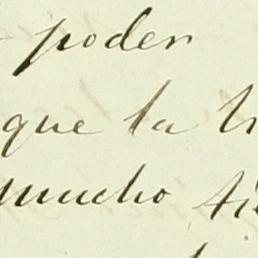 poder
que la
mucho